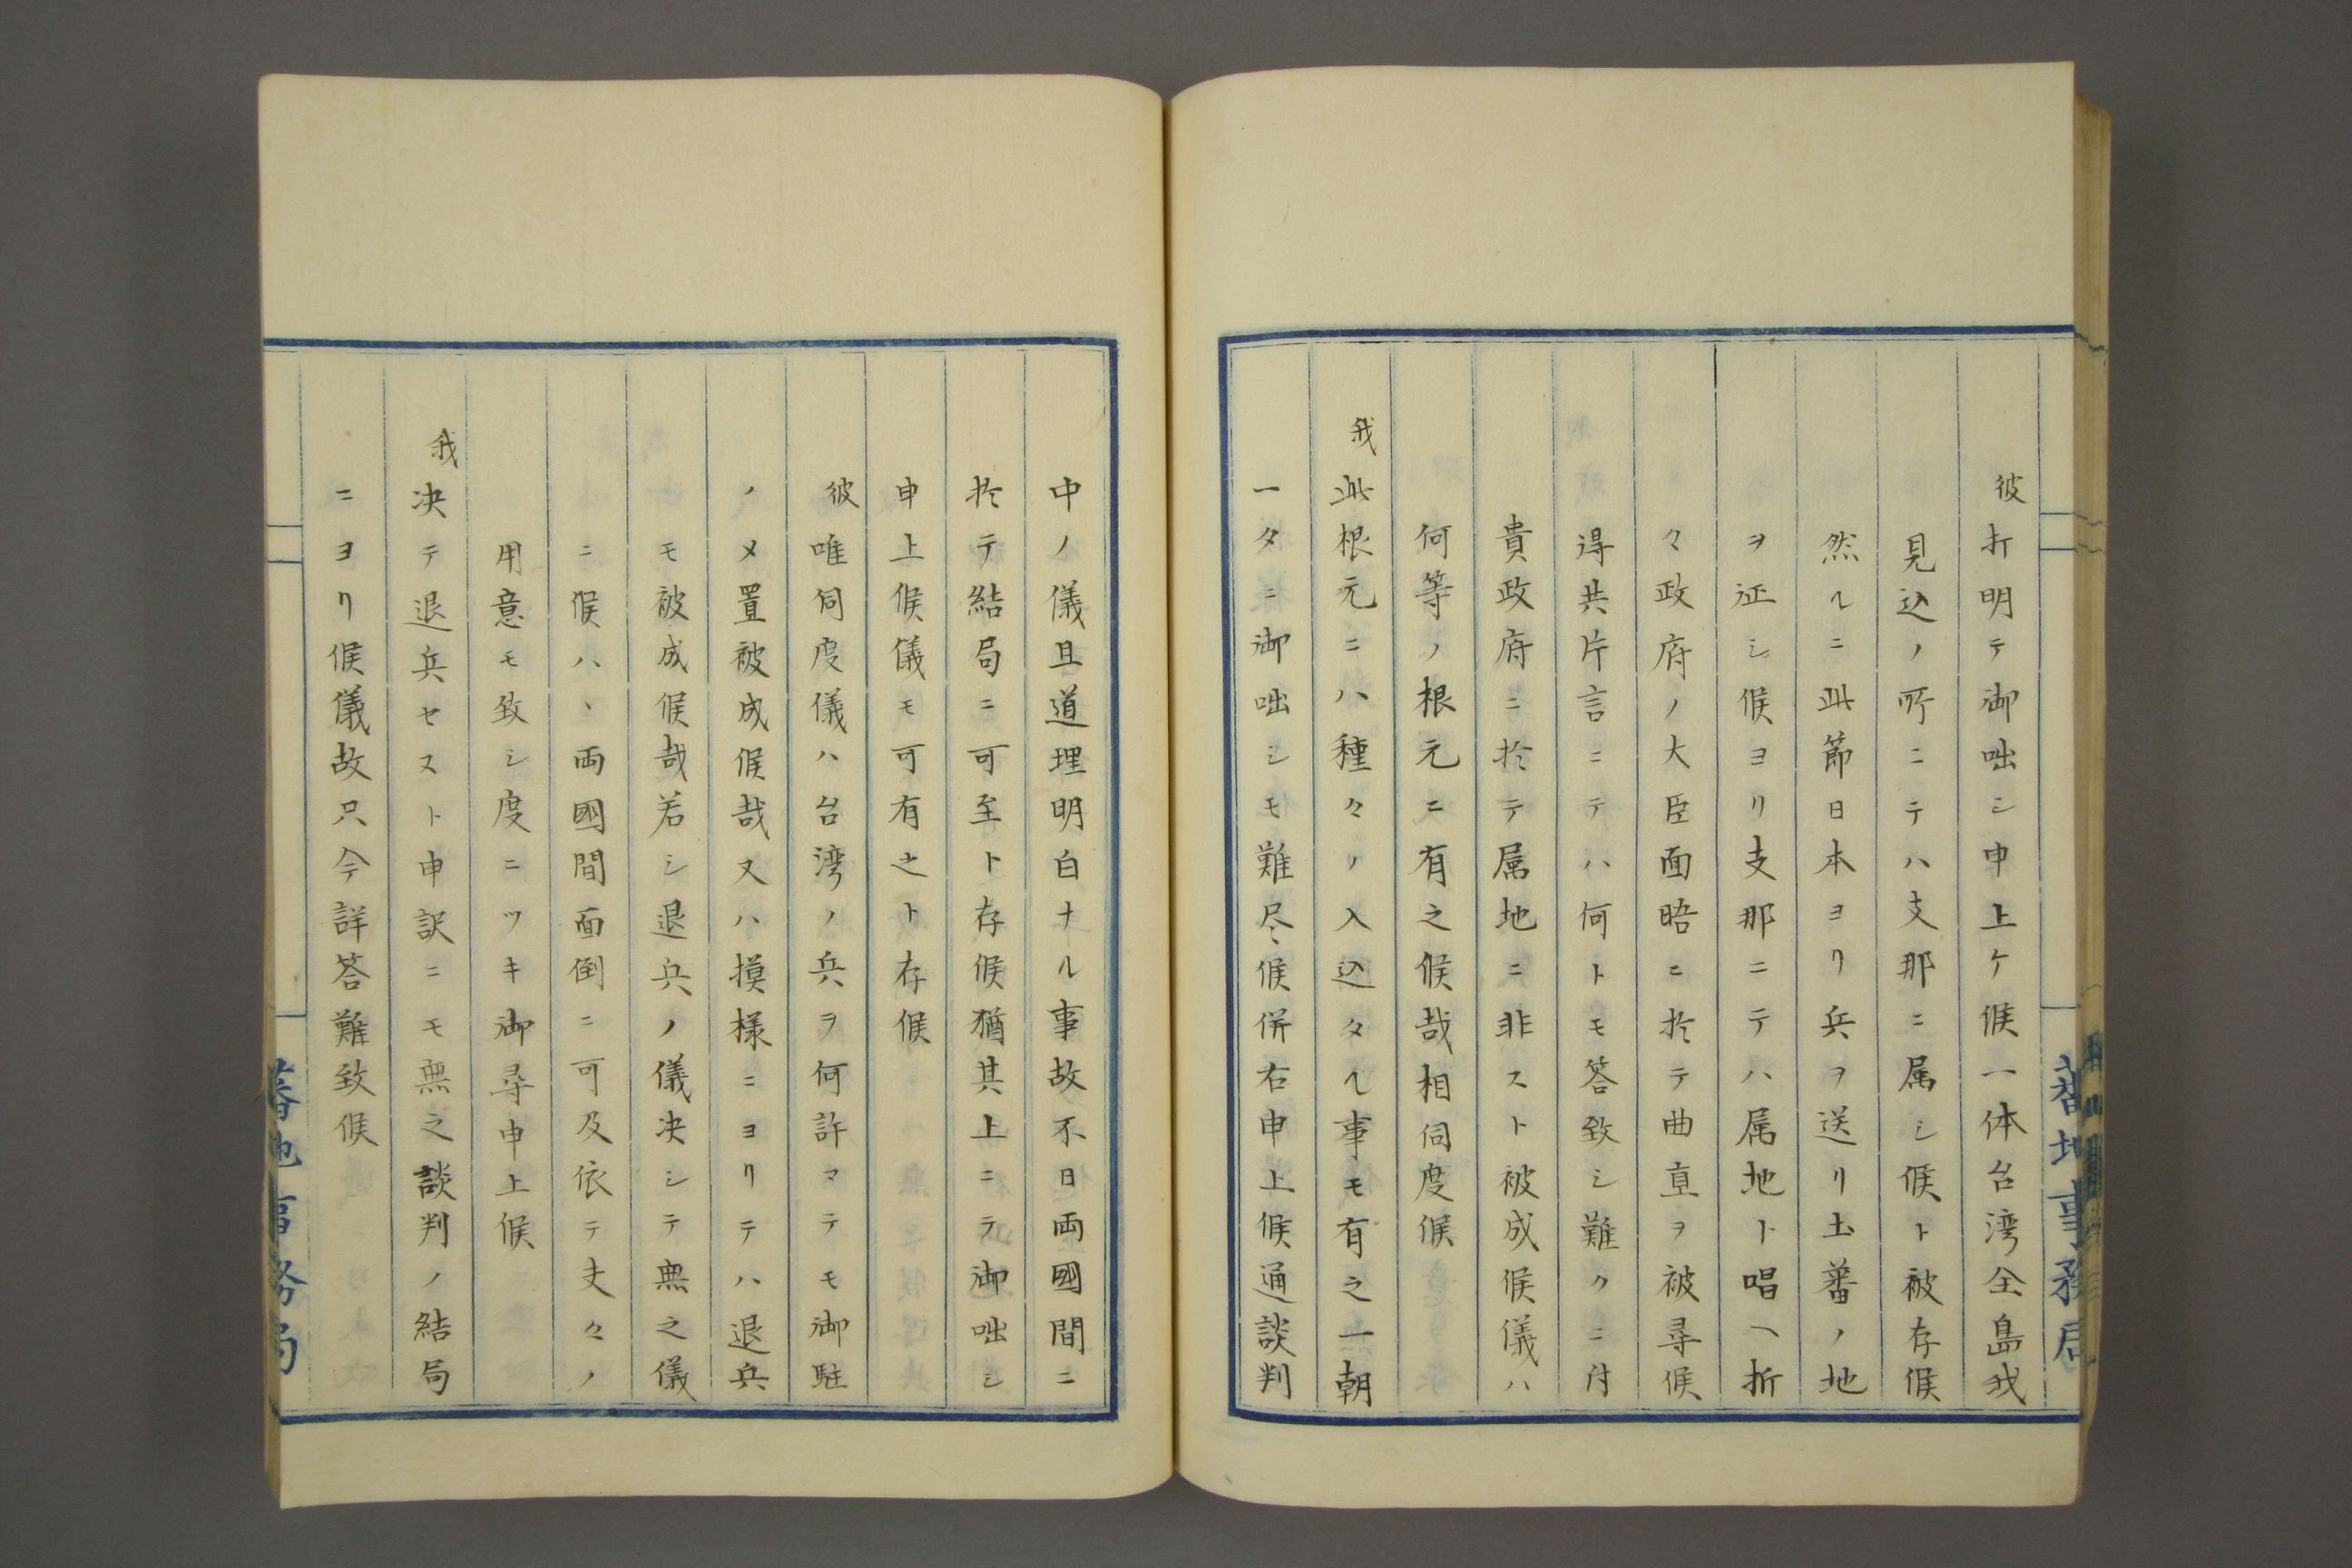 彼打明テ御咄シ申上ケ候一体台湾全島我
見込ノ所ニテハ支那ニ属シ候ト被存候
然ルニ此節日本ヨリ兵ヲ送リ土蕃ノ地
ヲ征シ候ヨリ支那ニテハ属地ト唱ヘ折
々政府ノ大臣面晤ニ於テ曲直ヲ被尋候
得共片言ニテハ何トモ答致シ難クニ付
貴政府ニ於テ属地ニ非スト被成候儀ハ
何等ノ根元ニ有之候哉相伺度候
我此根元ニハ種々ノ入込タル事モ有之一朝
一タニ御咄シモ難尽候併右申上候通談判
蕃地事務局
中ノ儀且道理明白ナル事故不日両國間ニ
於テ結局ニ可至ト存候猶其上ニテ御咄シ
申上候儀モ可有之ト存候
彼唯伺度儀ハ台湾ノ兵ヲ何許マテモ御駐
ノメ置被成候哉又ハ摸様ニヨリテハ退兵
モ被成候哉若シ退兵ノ儀决シテ無之儀
ニ候ハヽ両國間面倒ニ可及依テ夫々ノ
用意モ致シ度ニツキ御尋申上候
我决テ退兵セスト申訳ニモ無之談判ノ結局
ニヨリ候儀故只今詳答難致候
蕃地事務局